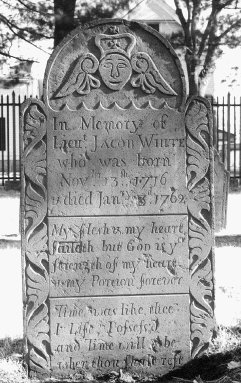 In Memory of
Lieu.t Jacob White
who was born
Nov.r 13.th 1716
& died Jan.ry 8.th 1762
My flesh & my heart
faileth but God is y.e
strength of my heart
& my Portion forever
Time was like thee
I Life Possess.d
and Time will be
when thou Shalt rest